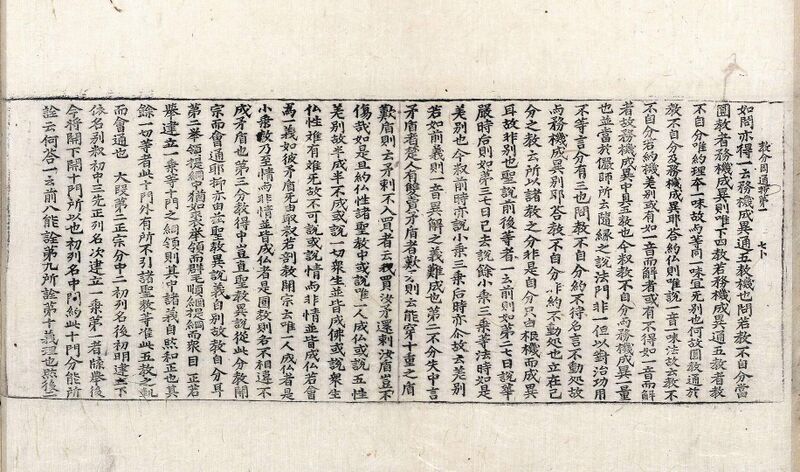 教分圓通鈔第一　七卜
如問亦得一云務機成異通五教機也問若教不自分當
圓教者務機成異則唯下四教若務機成異通五教者教
不自分唯約理本一味故与等同一味宜死別也何故圓教通於
教不自分及務機成異耶答約仏則唯說一音一味法故云教不
不自分若約機差別或有如一音而解者或有不得如一音而解
者故務機成異中具五教也今叙教不自分而務機成異一量
也並當於儼師所云隨緣之說法門非一但以對治功用
不等言分有三也問教不自分約不得名言不動処故
与務機成異別耶答教不自分唯約不動処也立在已
分之教云所以諸教之分非是自分只由根機而成異
耳故非別也聖說前後等者一云前則如第二七日說華
嚴時后則如第三七日已去說餘小乘三乘等法時如是
差別也今叙前時亦說小乘三乘后時亦令故云差別
若如前義則一音異解之義難成也第二不分失中言
矛盾者楚人有鬻賣矛盾者歎矛則云能穿十重之盾
歎盾則云矛剌不入買者云我買汝矛還剌汝盾豈不
傷哉如是且約仏性諸聖教中或說唯一人成仏或說五性
差別故半成半不成或說一切衆生並皆成佛或說衆生
仏性唯有唯死故不可說或說情与非情並皆成仏若會
爲一義如彼矛盾死由取救若剖教開宗云唯一人成仏者是
小乘教乃至情与非情並皆成仏者是圓教則各不相違不
成矛盾也第三分教得中豈直聖教異說從此分教開
宗而會通耶抑亦由玆聖教異說義自別故教自分耳
第二舉領提綱中猶如裘舉領而群毛順綱提綱而衆目正若
舉建立一乘等十門之綱領則其中諸義自然和正也其
餘一切等者此十門外有所不引諸聖教等准此五教之軌
而會通也　大段第二正宗分中二初列名後初明建立下
依名別叙初中三先正列名次建立一乘第一者除舉後
今将開下開十門所以也初列名中問約此十門分能所
詮云何答一云前八能詮第九所詮第十義理也然後二